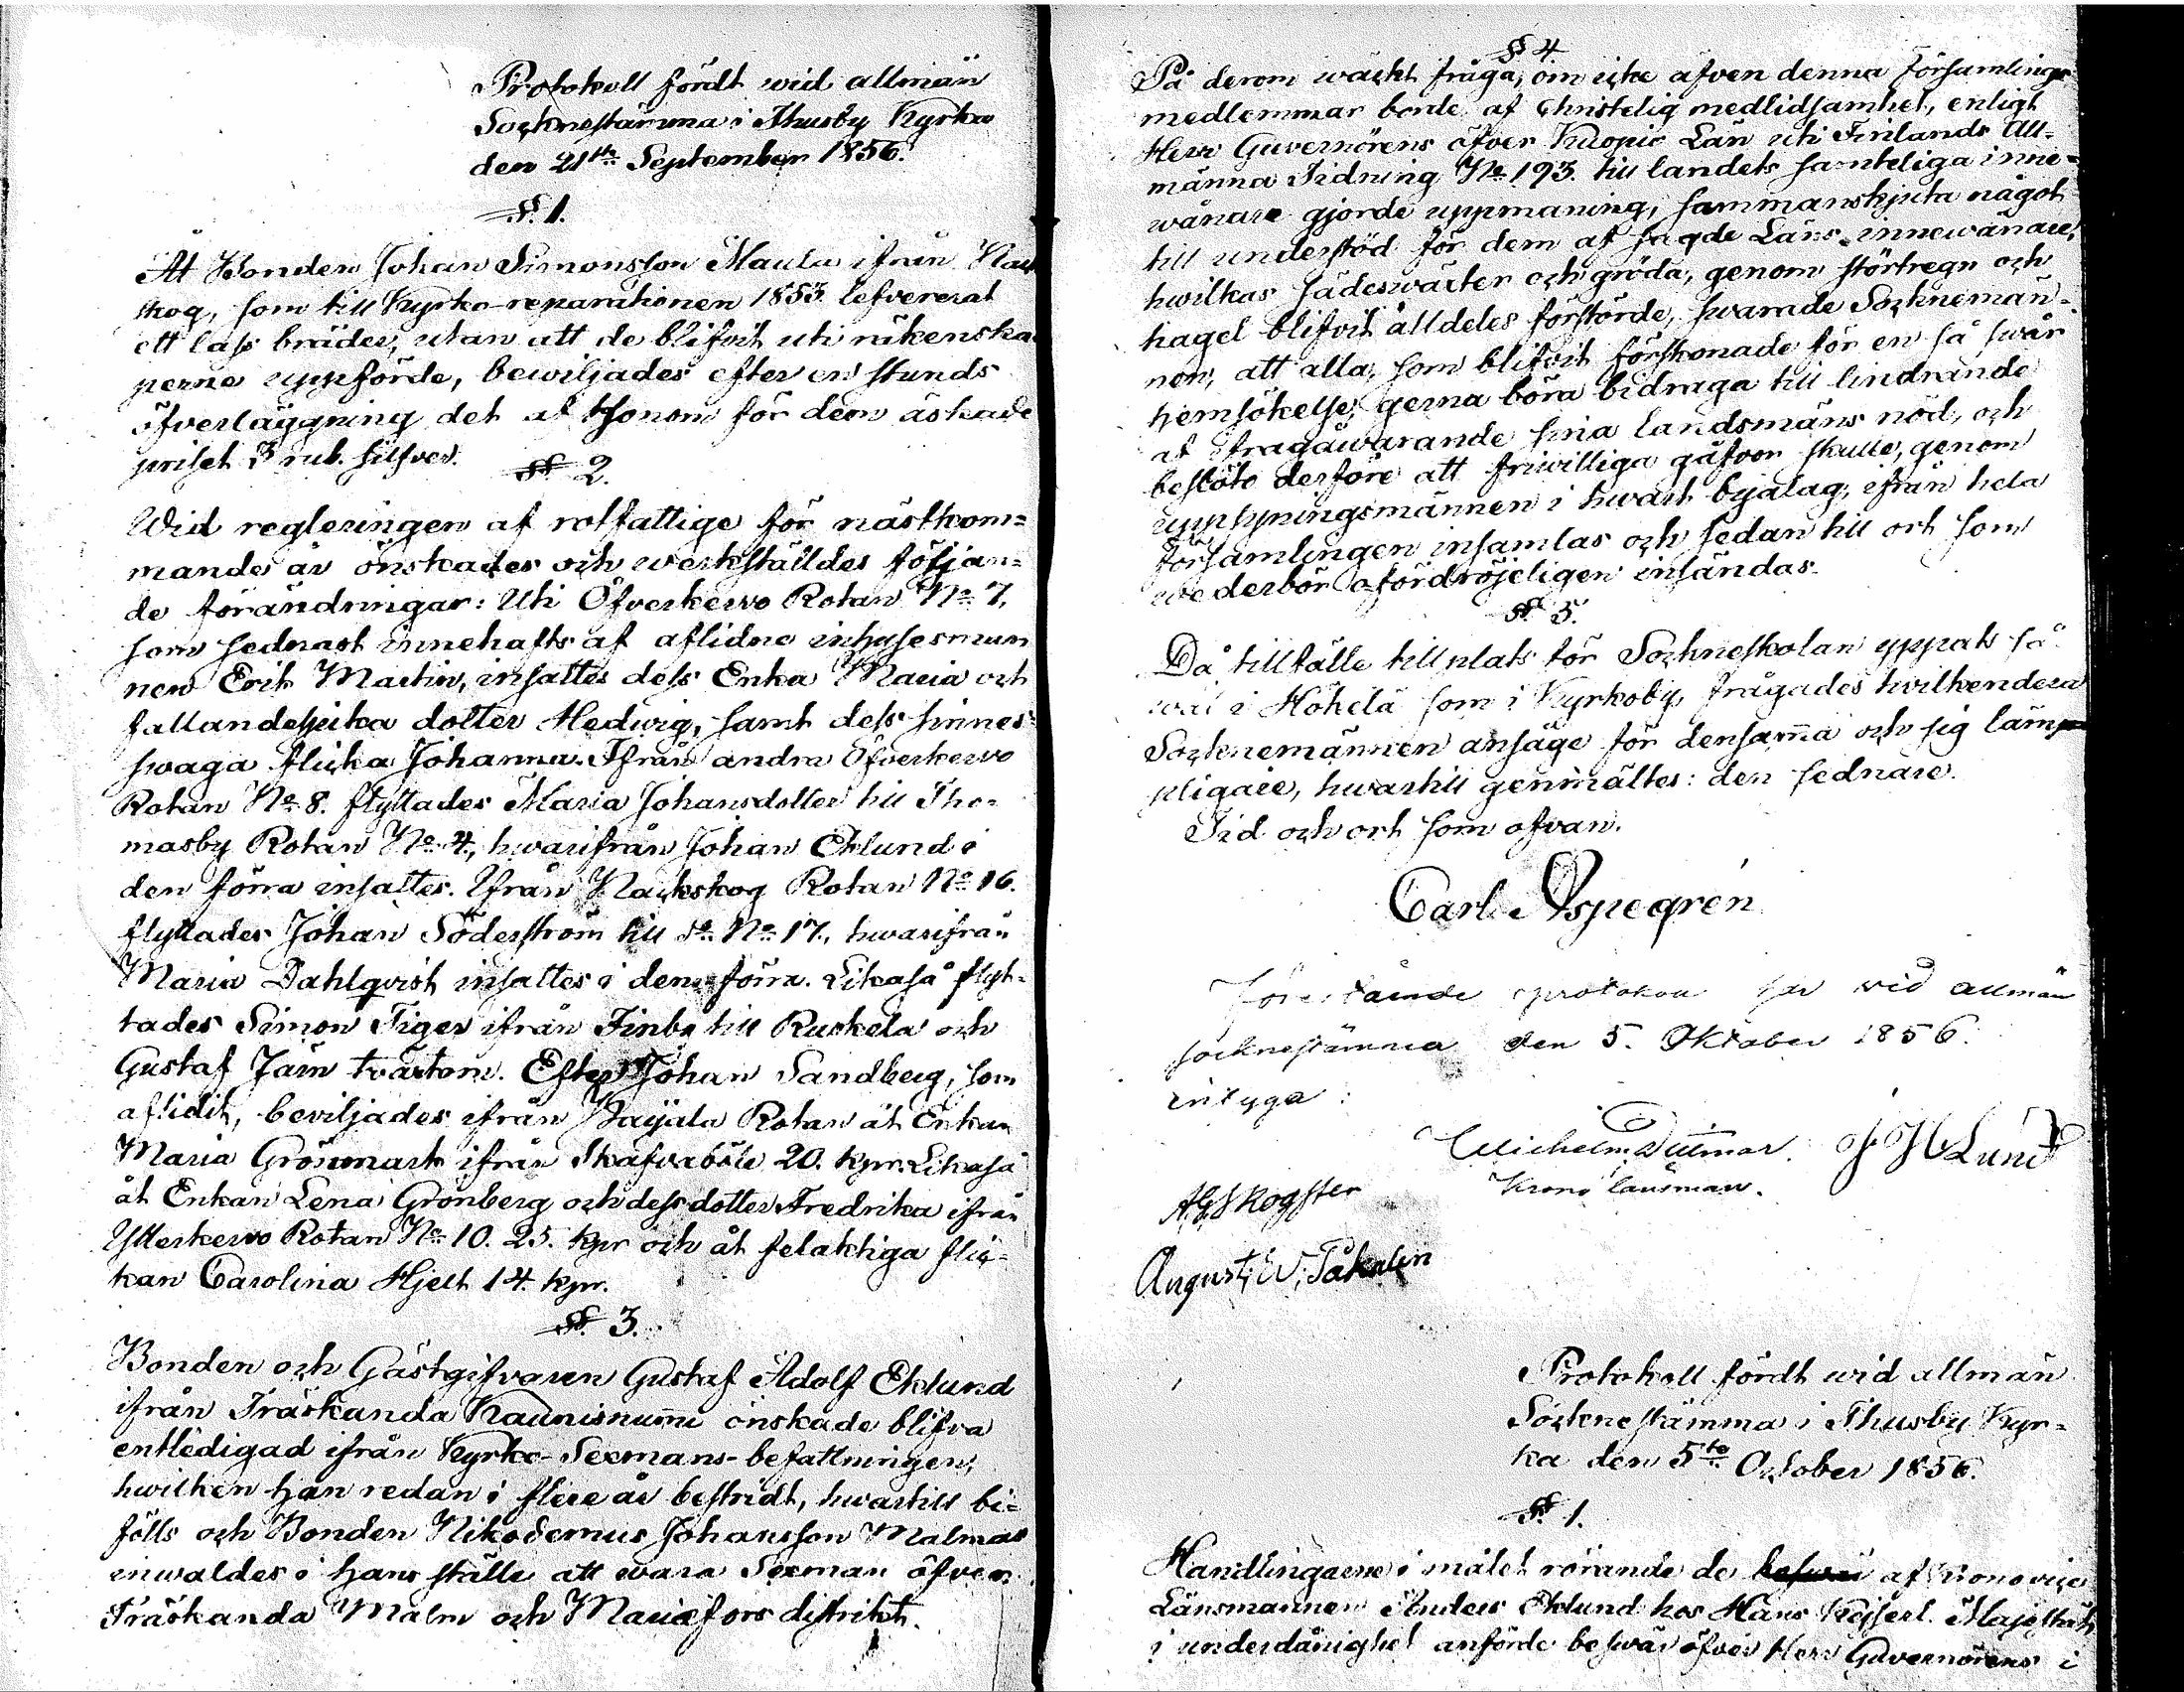 Protokoll fördt wid allmän
Socknestämma i Thusby Kyrka
den 21ste September 1856.
§. 1.
Åt Bonden Johan Simonsson Maula ifrån Nack
skog, som till Kyrko-reparationen 1853 lefvererat
ett lass bräder, utan att de blifvit uti räkenska
perne uppförde, bewiljades efter en stunds
öfverläggning det af honom för dem äskade
priset 3 rub. silfver.
§. 2.
Wid regleringen af rotfattige för nästkom=
mande år önskades och werkställdes följan=
de förändringar: Uti Öfverkervo Rotan No 7,
som sednast innehafts af aflidne inhysesman
nen Erik Martin, insattes dess Enka Maria och
fallandesjuka dotter Hedwig, samt dess sinnes
swaga flicka Johanna. Ifrån andra Öfverkervo
Rotan No 8. flyttades Maria Johansdotter till Tho=
masby Rotan No 4., hwarifrån Johan Eklund i
den förra insattes. Ifrån Nackskog Rotan No 16.
flyttades Johan Söderström till do No 17., hwarifrån
Maria Dahlqvist insattes i den förra. Likaså flyt=
tades Simon Tiger ifrån Finby till Ruskela och
Gustaf Järn tvärtom. Efter Johan Sandberg, som
aflidit, beviljades ifrån Rotan åt Enkan
Maria Grönmark ifrån Skafvaböle 20. kpr. Likaså
åt Enkan Lena Grönberg och dess dotter Fredrika ifrån
Ytterkervo Rotan No 10. 25. kpr och åt felaktiga flic=
kan Carolina Hjelt 14. kpr.
§. 3.
Bonden och Gästgifvaren Gustaf Adolf Eklund
ifrån Träskända Kaunisnumi önskade blifva
entledigad ifrån Kyrko-Sexmans-befattningen,
hwilken han redan i flere år bestridt, hwartill bi=
fölls och Bonden Nikodemus Johansson Malmas
inwaldes i hans ställe att wara Sexman öfver
Träskanda Malm och Mariæfors distrikt.
§ 4.
På derom wäckt fråga, om icke äfven denna Församlings
medlemmar borde af Christelig medlidsamhet, enligt
Herr Guvernörens öfver Kuopio Län uti Finlands All=
männa Tidning No 193. till landets samteliga inne=
wånare gjorde uppmaning, sammanskjuta något
till understöd för dem af sagde Läns innewånare,
hwilkas sädeswäxter och gröda, genom störtregn och
hagel blifvit alldeles förstörde, swarade Socknemän=
nen, att alla, som blifvit förskonade för en så swår
hemsökelse, gerna böra bidraga till lindrande
af ifrågawarande sina landsmäns nöd, och
beslöto derföre att friwilliga gåfvor skulle, genom
uppsyningsmännen i hwart byalag, ifrån hela
församlingen insamlas och sedan till ort som
wederbör ofördröjeligen insändas.
§. 5.
Då tillfälle till plats för Sockneskolan yppats så
wäl i Hökelä som i Kyrkoby, frågades hwilkendera
Socknemännen ansäge för densamma och sig lämp
pligare, hwartill genmältes: den sednare.
Tid och ort som ofvan.
Carl Aspegrén
Förestående protokoll har vid allmän
socknestämma den 5. Oktober 1856.
intyga:
Wilhelm Dittmar. J H Lund
Krono länsman.
A. G. Skogster
August W. Påkalén
Protokoll fördt wid allmän
Socknestämma i Thusby Kyr=
ka den 5te October 1856.
§. 1.
Handlingarne i målet rörande de af Kronovice
Länsmannen Anders Eklund hos Hans Kejserl. Majestät
i underdånighet anförde beswär öfver Herr Guvernörens i